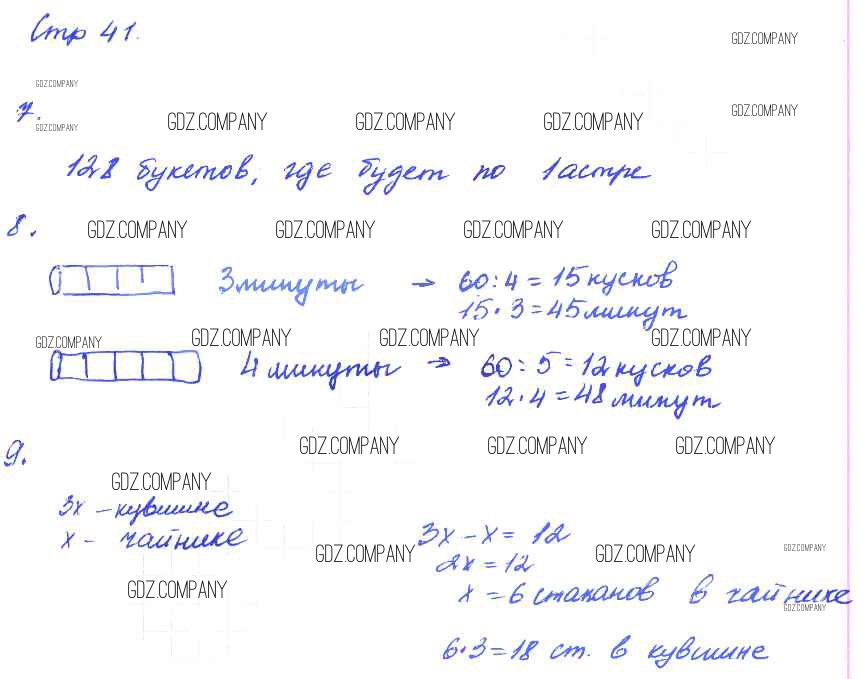 Стр 41.
GDZ.COMPANY
GDZ.COMPANY
7.
GDZ.COMPANY
GDZ.COMPANY GDZ.COMPANY GDZ.COMPANY GDZ.COMPANY
128 букетов, где будет по 1 астре
8.
GDZ.COMPANY GDZ.COMPANY GDZ.COMPANY GDZ.COMPANY
3 минуты → 60:4 = 15 кусков
15·3=45 минут
GDZ.COMPANY GDZ.COMPANY GDZ.COMPANY GDZ.COMPANY
4 минуты → 60:5=12 кусков
12·4=48 минут
9.
GDZ.COMPANY GDZ.COMPANY GDZ.COMPANY
GDZ.COMPANY
3х – кувшине
х – чайнике
3х – х = 12
GDZ.COMPANY GDZ.COMPANY GDZ.COMPANY
2х = 12
GDZ.COMPANY
х = 6 стаканов в чайнике
GDZ.COMPANY
6·3=18 ст. в кувшине